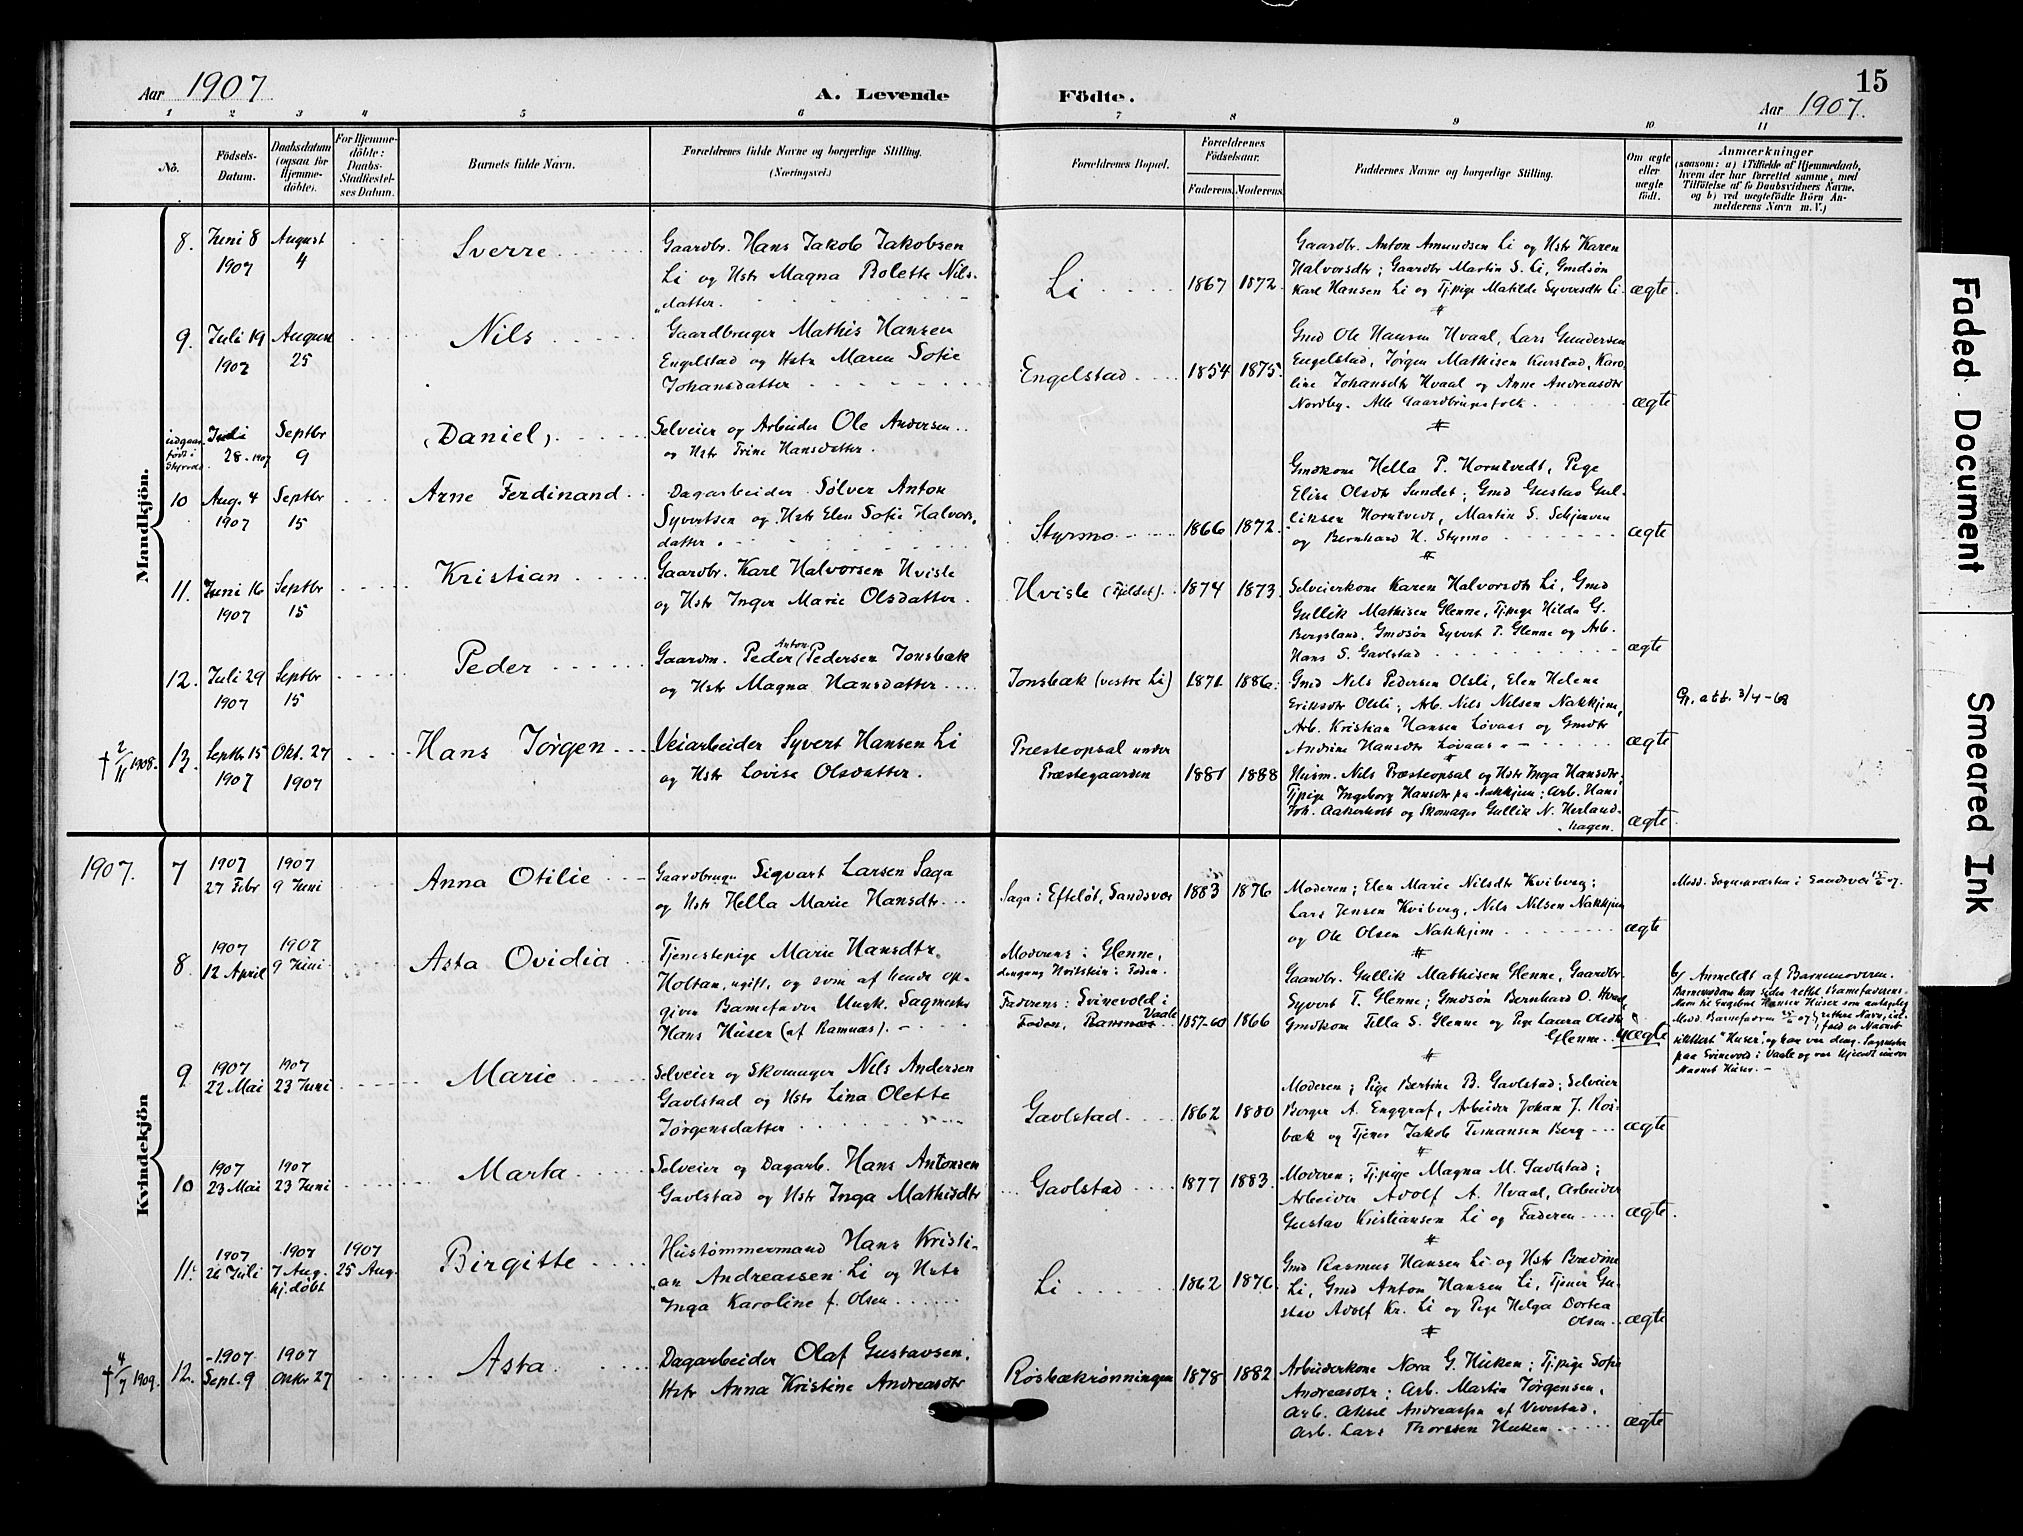 Aar 1907
A. Levende Födte.
15
Aar 1907.
1 2 3 4 5 6 7 8 9 10 11
No.
Födsels-
Datum.
Daabsdatum
(ogsaa for
Hjemme-
döbte).
For Hjemme-
döbte:
Daabs-
Stadfæstel-
ses Datum.
Barnets fulde Navn.
Forældrenes fulde Navne og borgerlige Stilling.
(Næringsvei.)
Forældrenes Bopæl.
Forældrenes
Födselsaar.
Faderens. Moderens.
Faddernes Navne og borgerlige Stilling.
Om ægte
eller
uægte
födt.
Anmærkninger
(saasom: a) i Tilfælde af Hjemmedaab,
hvem der har forrettet samme, med
Tilföielse af to Daabsvidners Navne.
og b) ved uægtefödte Börn An-
melderens Navn m. V.)
Mandkjön.
8. Juni 8
1907
August
4
Sverre
Gaardbr. Hans Jakob Jakobsen
Li og Hstr Magna Bolette Nils-
datter.
Li
1867 1872.
Gaardbr. Anton Amundsen Li og Hstr Karen
Halvorsdtr; Gaardbr Martin S. Li, Gmdsøn
Karl Hansen Li og Tj.pige Matilde Syversdtr Li.
ægte.
9. Juli 19
1907
August
25
Nils
Gaardbruger Mathis Hansen
Engelstad og Hstr Maren Sofie
Johansdatter
Engelstad
1854 1875.
Gmd Ole Hansen Hvaal, Lars Gundersen
Engelstad, Jørgen Mathisen Kurstad, Karo-
line Johansdtr Hvaal og Anne Andreasdtr
Nordby. Alle Gaardbrugefolk.
ægte
udgaar
født i
Juli
28 1907
Septbr
9
(Daniel)
Selveier og Arbeider Ole Andersen
og Hstr Trine Hansdatter.
10 Aug. 4
1907
Septbr
15
Arne Ferdinand
Dagarbeider Sølver Anton
Syvertsen og Hstr Elen Sofie Halvors-
datter.
Styrmo
1866 1872.
Gmdkone Hella P. Horntvedt, Pige
Elise Olsdtr Sundet; Gmd Gustav Gul-
liksen Horntvedt, Martin S. Schjerven
og Bernhard H. Styrmo
ægte
11. Juni 16
1907
Septbr
15
Kristian
Gaardbr. Karl Halvorsen Hvisle
og Hstr Inger Marie Olsdatter.
Hvisle (Fjeldet).
1874 1873.
Selveierkone Karen Halvorsdtr Li, Gmd
Gullik Mathisen Glenne, Tj.pige Hilda G.
Bergsland, Gmdsøn Syvert T. Glenne og Arb.
Hans S. Gavlstad
ægte
12. Juli 29
1907
Septbr
15
Peder
Gaardm. Peder Anton Pedersen Jonsbæk
og Hstr Magna Hansdatter
Jonsbæk (vestre Li)
1871 1886.
Gmd Nils Pedersen Olsli, Elen Helene
Eriksdtr Olsli; Arb. Nils Nilsen Nakkjem,
Arb. Kristian Hansen Løvaas og Gmdtr
Andrine Hansdtr Løvaas
ægte
3/4-68
† 2/11 1908.
13. Septbr 15
1907
Okt. 27
1907
Hans Jørgen
Veiarbeider Syvert Hansen Li
og Hstr Lovise Olsdatter.
Præsteopsal under
Præstegaarden
1881 1888
Husm. Nils Præsteopsal og Hstr Inga Hansdtr.
Tj.pige Ingeborg Hansdtr pa Nakkjem; Arb. Hans
Joh. Aakerholt og Skomager Gullik N. Herland-
hagen.
ægte
1907.
Kvindekjön
7 1907
27 Febr
1907
9 Juni
Anna Otilie
Gaardbruger Sigvart Larsen Saga
og Hstr Hella Marie Hansdtr.
Saga i Efteløt, Sandsvær
1883 1876
Moderen; Elen Marie Nilsdtr Kviberg;
Lars Jensen Kviberg, Nils Nilsen Nakkjem
og Ole Olsen Nakkjem
ægte
Medd. Sognepræsten i Sandsvær 15/6 07.
8 1907
12 April
1907
9 Juni
Asta Ovidia
Tjenestepige Marie Hansdtr
Holtan, ugift, og som af hende op-
given Barnefader Ungk. Sagmester
Hans Huser (af Ramnæs).
Moderens: Glenne,
Faderens: Svinevold i
Vaale
1857-60 1866
Gaardbr. Gullik Mathisen Glenne, Gaardbr.
Syvert T. Glenne; Gmdsøn Bernhard O. Hvaal,
Gmdkone Tilla S. Glenne og Pige Laura Olsdtr
Glenne.
uægte
b) Anmeldt af Barnemoderen.
Barnemoderen har siden rettet Barnefaderens
Navn til Engebret Hansen Huser som antagelig
paa Svinevold i Vaale og var kjendt under
Navnet Huser.
9 1907
22 Mai
1907
23 Juni
Marie
Selveier og Skomager Nils Andersen
Gavlstad og Hstr Lina Olette
Jørgensdatter
Gavlstad
1862 1880
Moderen; Pige Bertine B. Gavlstad; Selveier
Borger A. Enggraf, Arbeider Johan J. Røs-
bæk og Tjener Jakob Tomansen Berg
ægte
10 1907
23 Mai
1907
23 Juni
Marta
Selveier og Dagarb. Hans Antonsen
Gavlstad og Hstr Inga Mathisdtr
Gavlstad
1877 1883.
Moderen; Tj.pige Magna M. Gavlstad;
Arbeider Adolf A. Hvaal, Arbeider
Gustav Kristiansen Li og Faderen
ægte.
11. 1907
26 Juli
1907
7 Aug.
hj.døbt
1907
25 Aug.
Birgitte
Hustømmermand Hans Kristi-
an Andreassen Li og Hstr
Inga Karoline f. Olsen
Li
1862 1876.
Gmd Rasmus Hansen Li og Hstr Bredine
Li, Gmd Anton Hansen Li, Tjener Gu-
stav Adolf Kr. Li og Pige Helga Dortea
Olsen
ægte
† 4/7 1909.
12. 1907
Sept. 9
1907
Oktbr 27
Asta
Dagarbeider Olaf Gustavsen,
Hstr Anna Kristine Andreasdtr
Røsbækrønningen
1878 1882
Arbeiderkone Nora G. Huken; Tj.pige Sofie
Andreasdtr; Arb. Martin Jørgensen,
Arb. Aksel Andreassen af Vivestad,
Arb. Lars Thorssen Huken
ægte
Faded Document
Smeared Ink